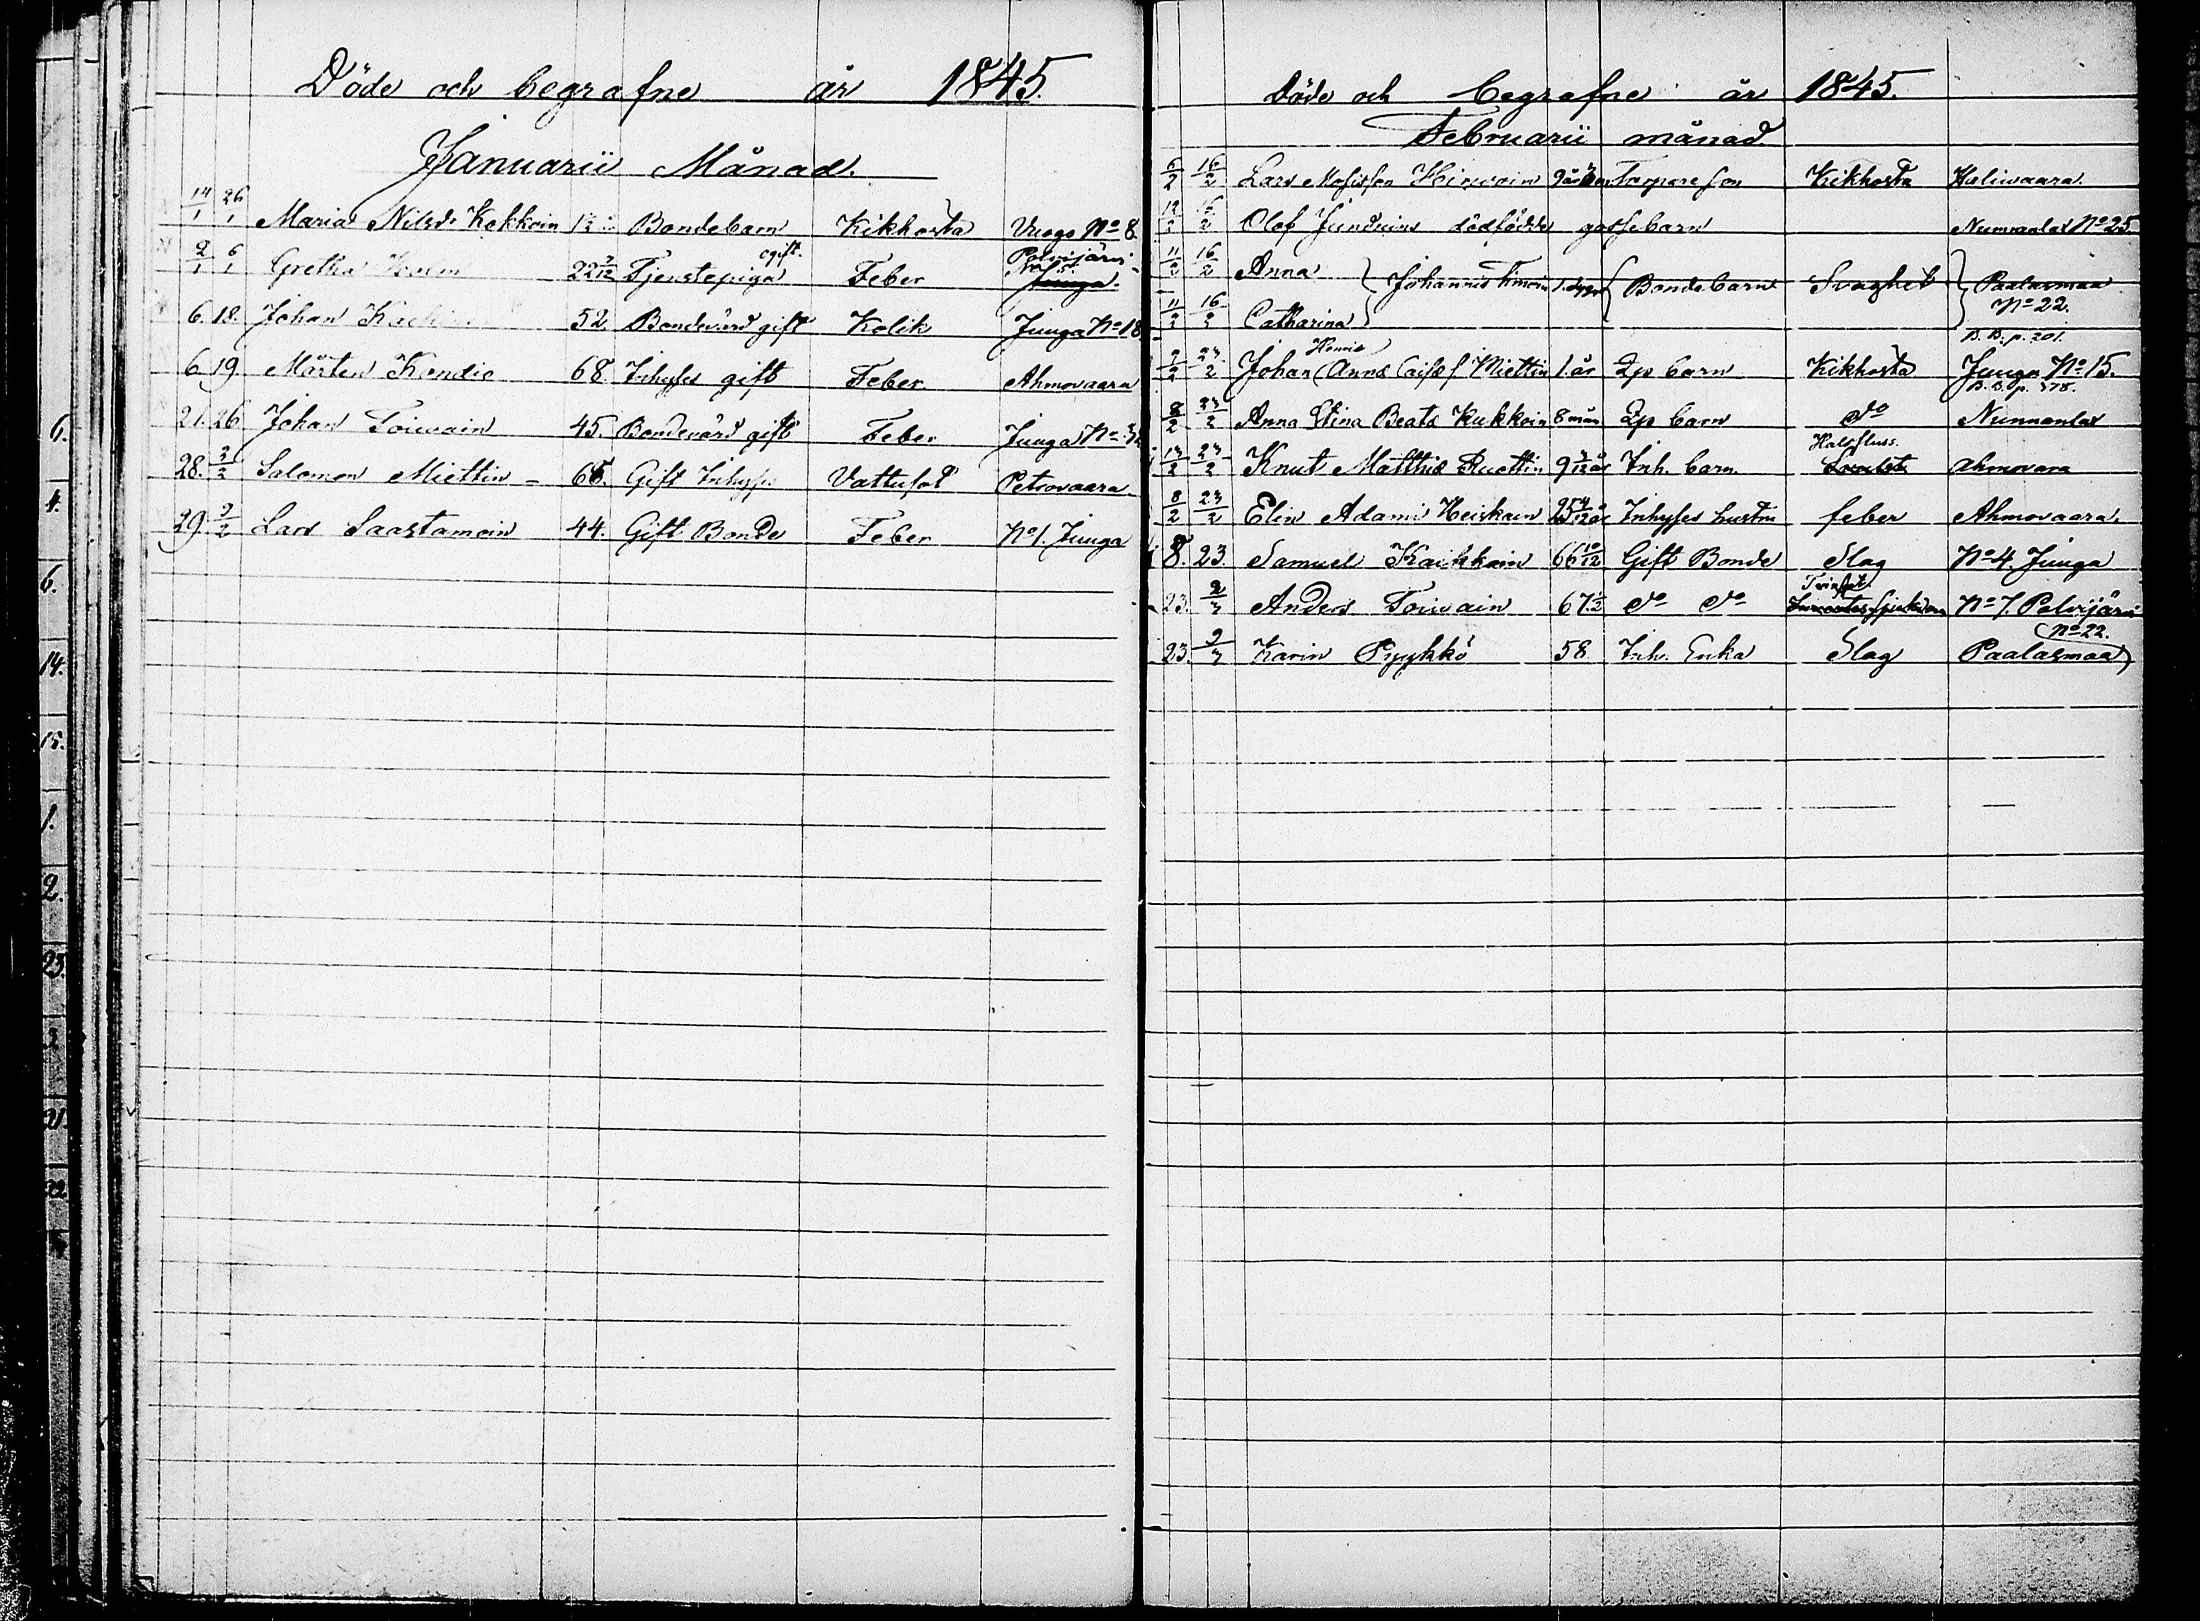 Döde och begrafne år 1845.
Januarii Månad.
14/1 26/1 Maria Nilsd. Kokkoin 1 Bondebarn Kikhosta Vuogo No 8.
ogift. Polvijärvi
2/1 6/1 Gretha 22 3/12 Tjenstepiga Feber No 5. Juuga.
6. 18. Johan 52 Bondevärd gift Kolik Juuga No 18
6 19. Mårten Kondie 68. Inhyses gift Feber Ahmovaara
21. 26 Johan Toiwain 45. Bondevärd gift Feber Juuga No
28. 2/2 Salomon Miettin - 66. Gift Inhyses Vattusot Petrovaara
29. 9/2 Lars Saastamoin 44. Gift Bonde Feber No 1. Juuga
6.
4.
6.
14.
15.
1.
2.
23.
2
21
22
Döde och begrafne år 1845.
Februarii månad
6/2 16/2 Lars Mosisson Hirwoin 9 Torpare son Kikhosta Kaliwaara.
12/2 16/2 Olof dödfödde gossebarn Nunnanlax No 25.
11/2 16/2 Anna } Johannis Timoin 1. dygn { Bondebarn Svaghet } Paalasmaa
11/2 16/2 Catharina } No 22.
Henric B. B. p. 201.
2/2 23/2 Johan (Anna Caisa) Miettin 1. år Lp barn Kikhosta Juuga No 15.
B. B. p. 378.
8/2 23/2 Anna Stina Beata Kukkoin 8 mån Lp barn do Nunnanlax
Halsfluss.
13/2 23/2 Knut Matthis Ruottin 9 3/12 år Inh. barn. Ahmovara
8/2 23/2 Elin Adami Heiskain 25 4/12 år Inhyses hustru feber Ahmovaara.
8. 23. Samuel Kaikkoin 66 10/12 Gift Bonde Slag No 4. Juuga
23. 2/3 Anders Toiwain 67 1/2 do do No 7. Polvijärvi
No 22.
23. 9/3 Karin Pyykkö 58 Inh. Enka Slag Paalasmaa